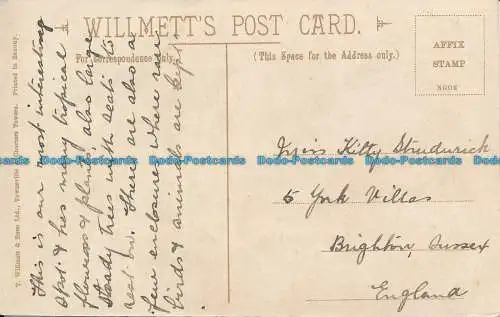 WILLMETT'S POST CARD.
For Correspondence Only.
(This Space for the Address only.)
AFFIX
STAMP
HERE
This is our most interesting
spot & has many tropical
flowers & plants, also large
shady trees with seats to
rest on. There are also a
few enclosures where rare
birds & animals are kept.
Miss Kitty Strudwick
5 York Villas
Brighton, Sussex
England
T. Willmett & Sons Ltd., Townsville & Charters Towers. Printed in Saxony.
Dodo-Postcards Dodo-Postcards Dodo-Postcards Dodo-Postcards Dodo-Postcards